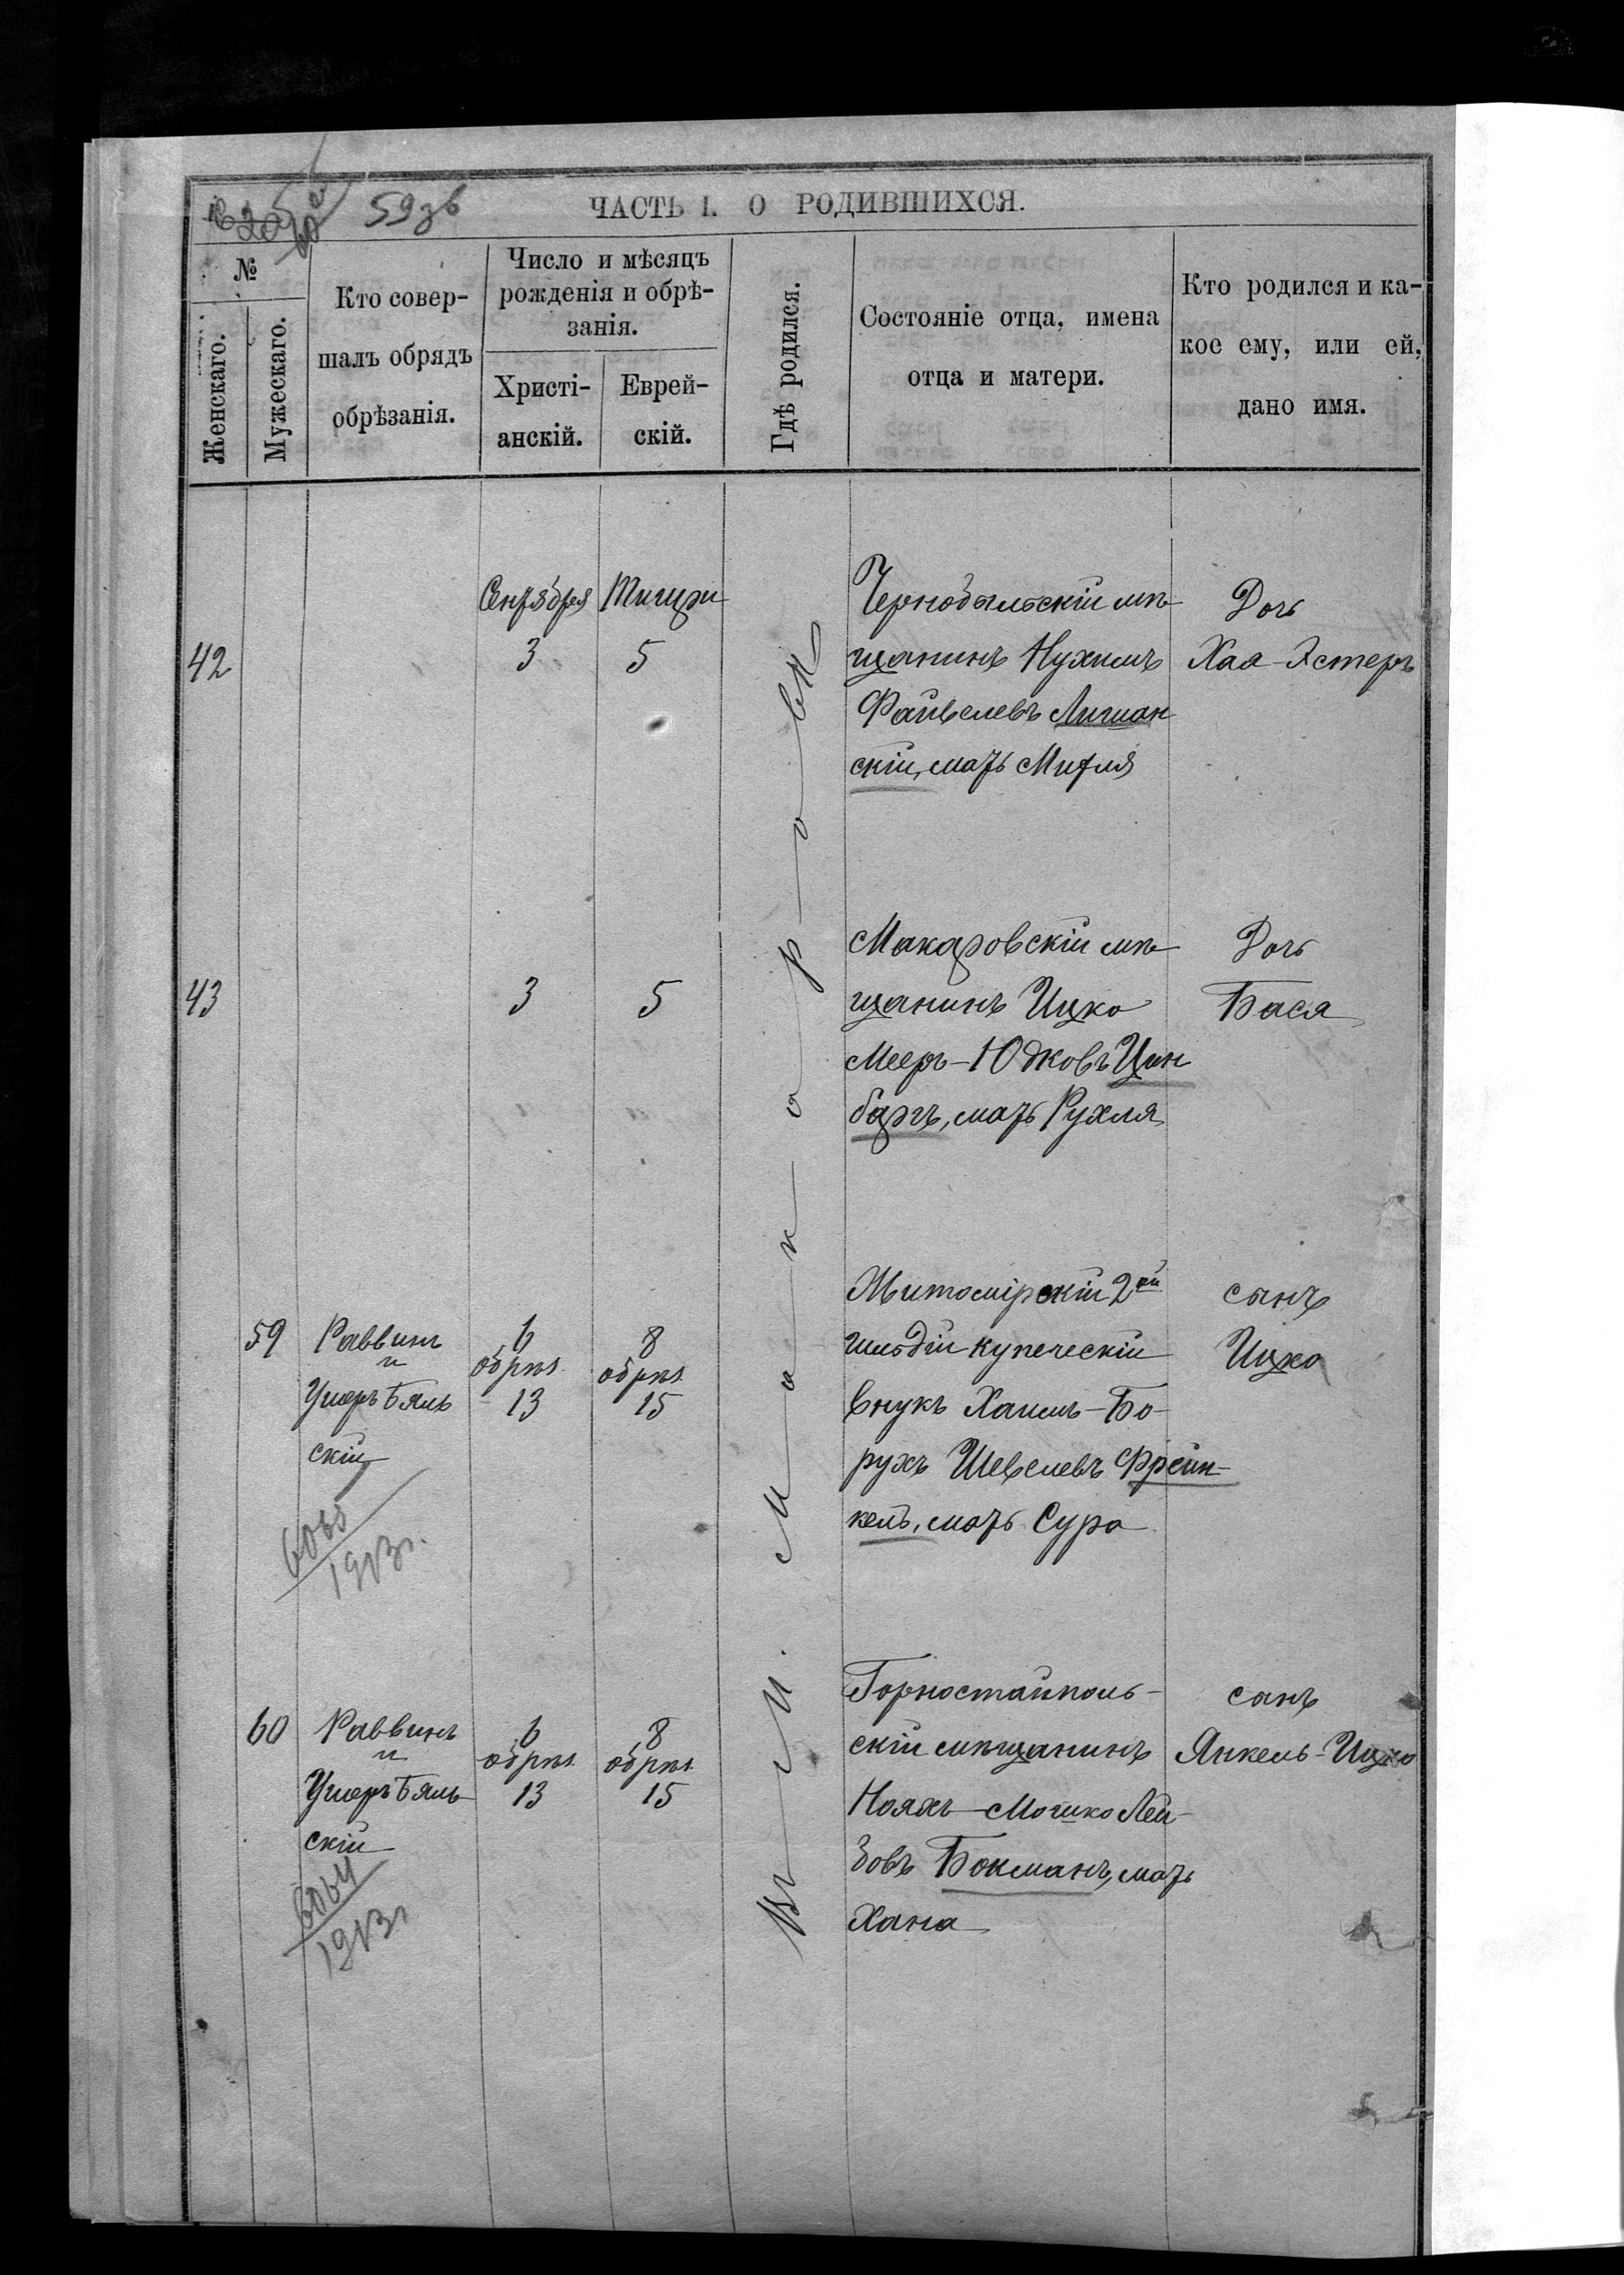 59 зв
ЧАСТЬ I. О РОДИВШИХСЯ.
№
Женскаго.
Мужескаго.
Кто совер-
шалъ обрядъ
обрѣзанія.
Число и мѣсяцъ
рожденія и обрѣ-
занія.
Христі-
анскій.
Еврей-
скій.
Гдѣ родился.
Состояніе отца, имена
отца и матери.
Кто родился и ка-
кое ему, или ей,
дано имя.
Въ м. Макаровѣ
42
Сентября
3
Тишри
5
Чернобыльскій мѣ-
щанинъ Нухимъ
Файвелевъ
скій, мать
Дочь
Хая-Эстеръ
43
3
5
Макаровскій мѣ-
щанинъ Ицко
Мееръ-Юдковъ Цин
бергъ, мать Рухля
Дочь
Бася
59
Раввинъ
и
Ушеръ Бяль
скій
6
обрѣз.
13
8
обрѣз.
15
Житомірскій 2ой
гильдіи купеческій
внукъ Хаимъ-Бо-
рухъ Шевелевъ Френ-
кель, мать Сура
сынъ
Ицко
1913г.
60
Раввинъ
и
Ушеръ Бяль
скій
6
обрѣз.
13
8
обрѣз.
15
Горностайполь-
скій мѣщанинъ
Нояхъ-Мошко Лей-
зовъ Бокманъ, мать
Хана
сынъ
Янкель-Ицко
6064
1913г